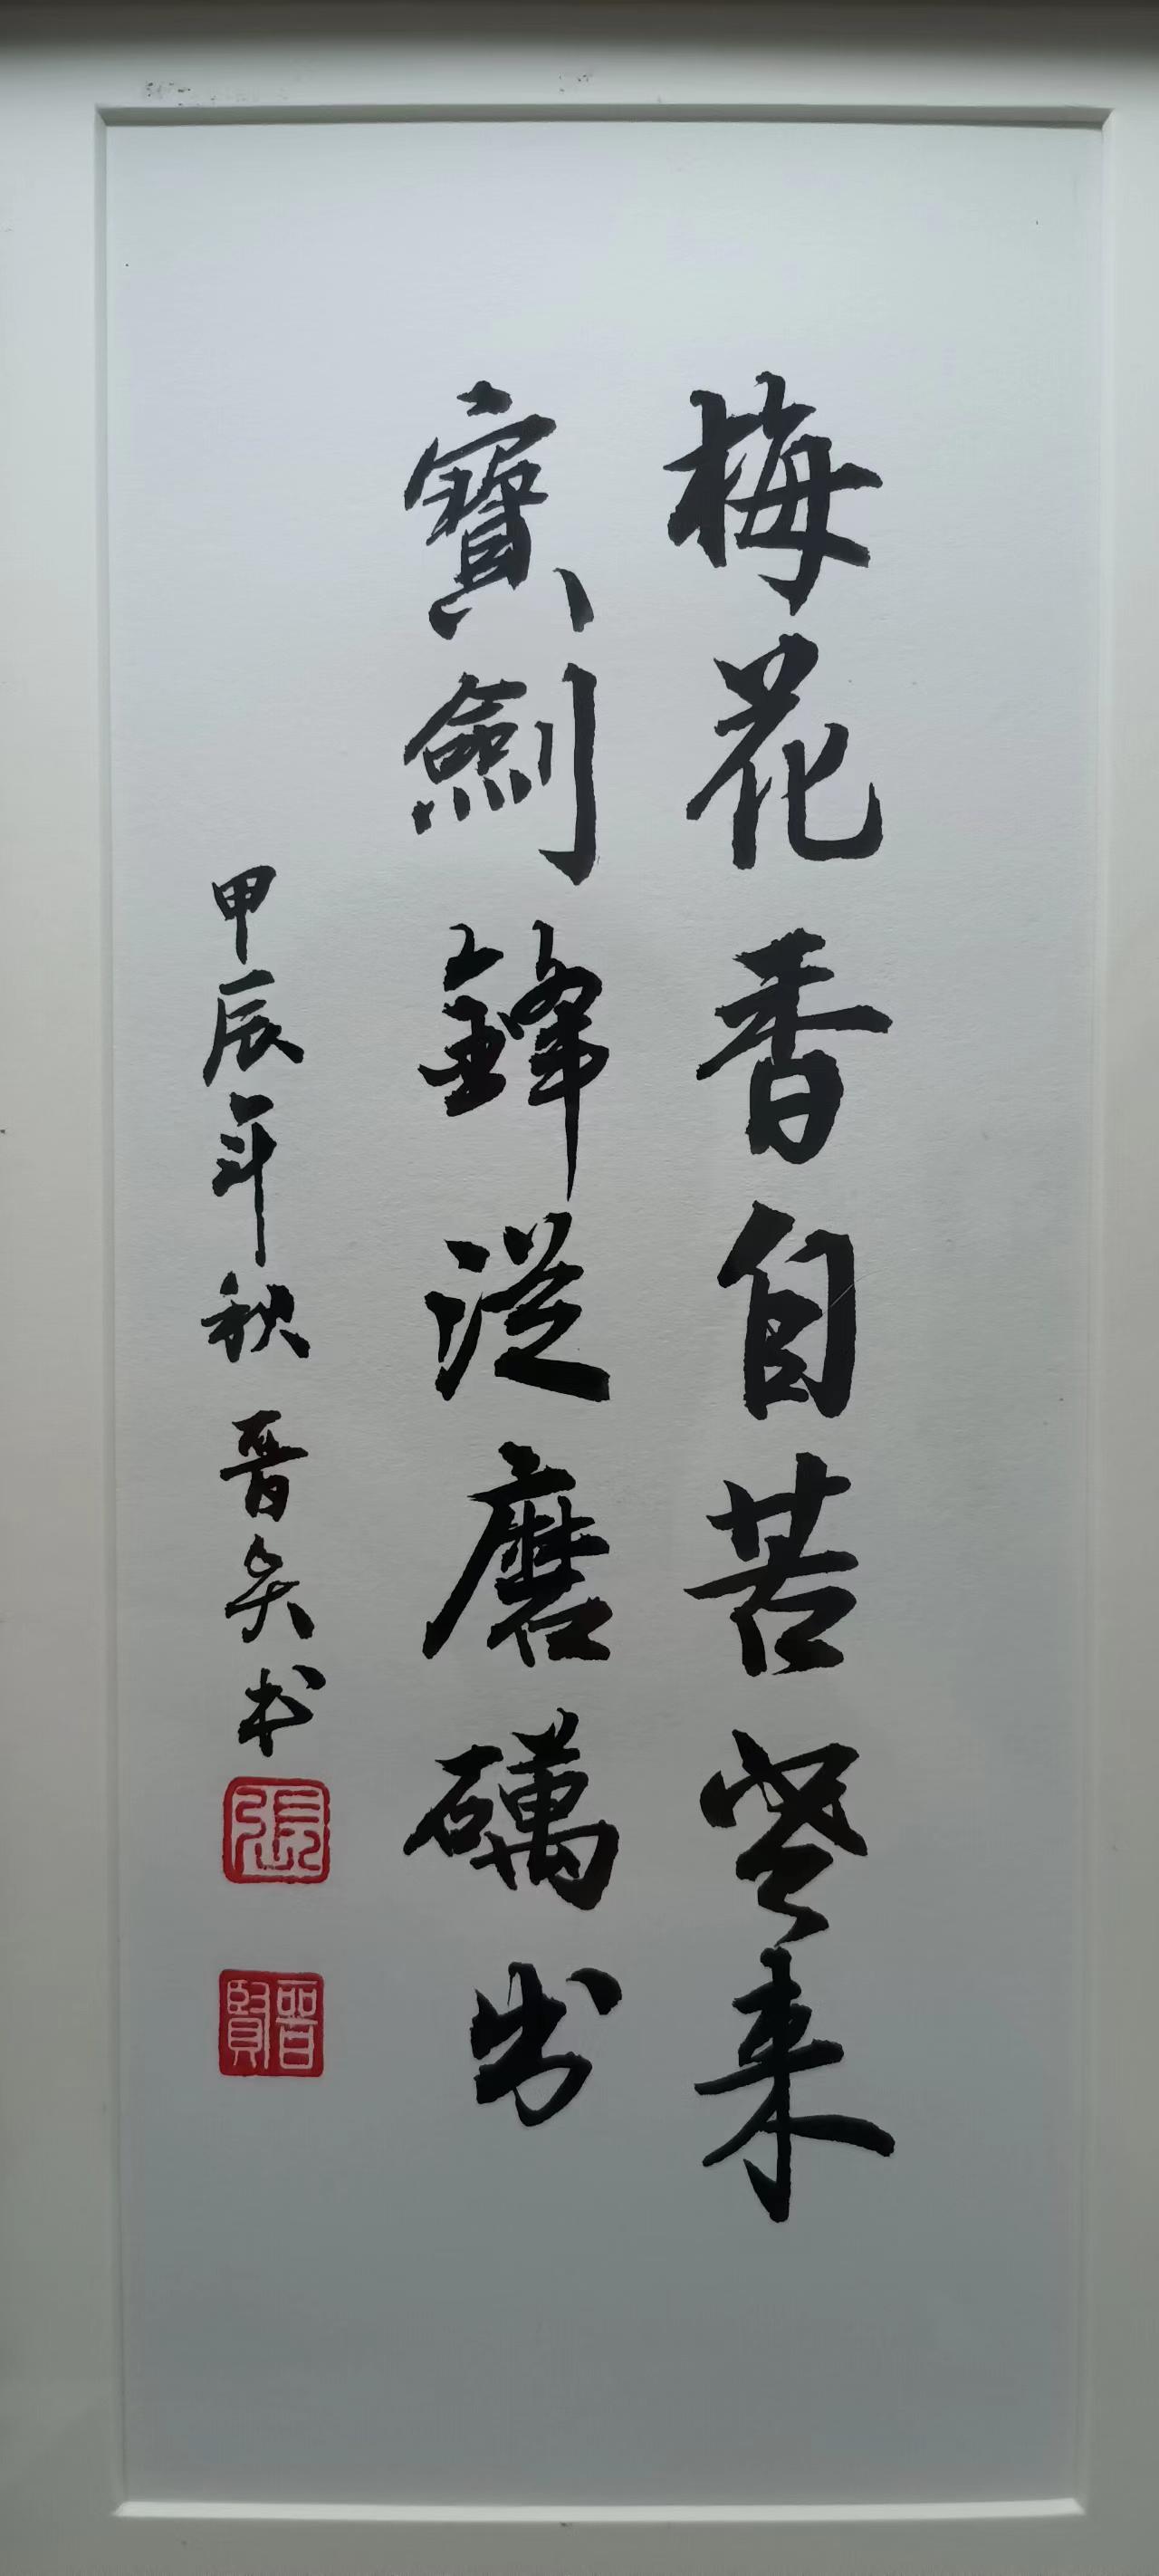 梅花香自苦寒来
寶劍鋒從磨礪出
甲辰年秋 晋书
張
晉賢